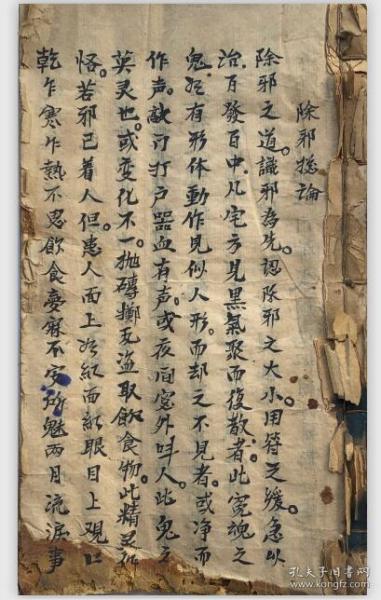 除邪总論
除邪之道。識邪為先。認除邪之大小。用符之緩急。以
治。百發百中。凡宅方見黑氣聚而復散者。此冤魂之
鬼。有形体動作見似人形。而却之不見者。或净而
作声。敲可打户器血有声。或夜间窓外呌人。此鬼之
英灵也。或变化不一抛磚擲瓦盗取飲食物。此精
怪。若邪已着人。但患人面上紅面眼目上視口
乾乍寒乍熱不思飲食夢寐不安魅两目流淚事
孔夫子旧书网